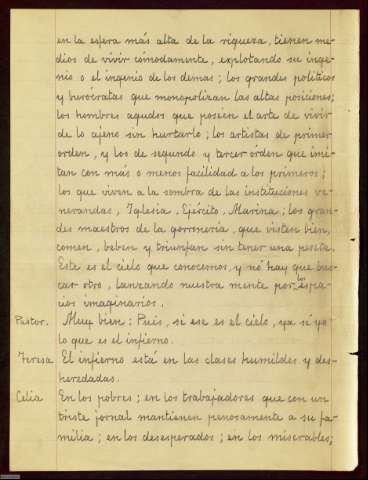 en la esfera más alta de la riqueza, tienen me-
dios de vivir cómodamente, explotando su inge-
nio o el ingenio de los demas; los grandes políticos
y burócratas que monopolizan las altas posiciones;
los hombres agudos que poseen el arte de vivir
de lo ajeno sin hurtarlo; los artistas de primer
orden, y los de segundo y tercer órden que imi-
tan con más o menos facilidad a los primeros;
los que viven a la sombra de las instituciones ve-
nerandas, Iglesia, Ejército, Marina; los gran-
des maestros de la gorronería, que visten bien,
comen, beben y triunfan sin tener una peseta.
Este es el cielo que conocemos, y no hay que bus-
car otro, lanzando nuestra mente por espa-
cios imaginarios.
Pastor. Muy bien: Pues, si ese es el cielo, ya sé yo
lo que es el infierno.
Teresa El infierno está en las clases humildes y des-
heredadas.
Celia En los pobres; en los trabajadores que con un
triste jornal mantienen penosamente a su fa-
milia; en los desesperados; en los miserables;